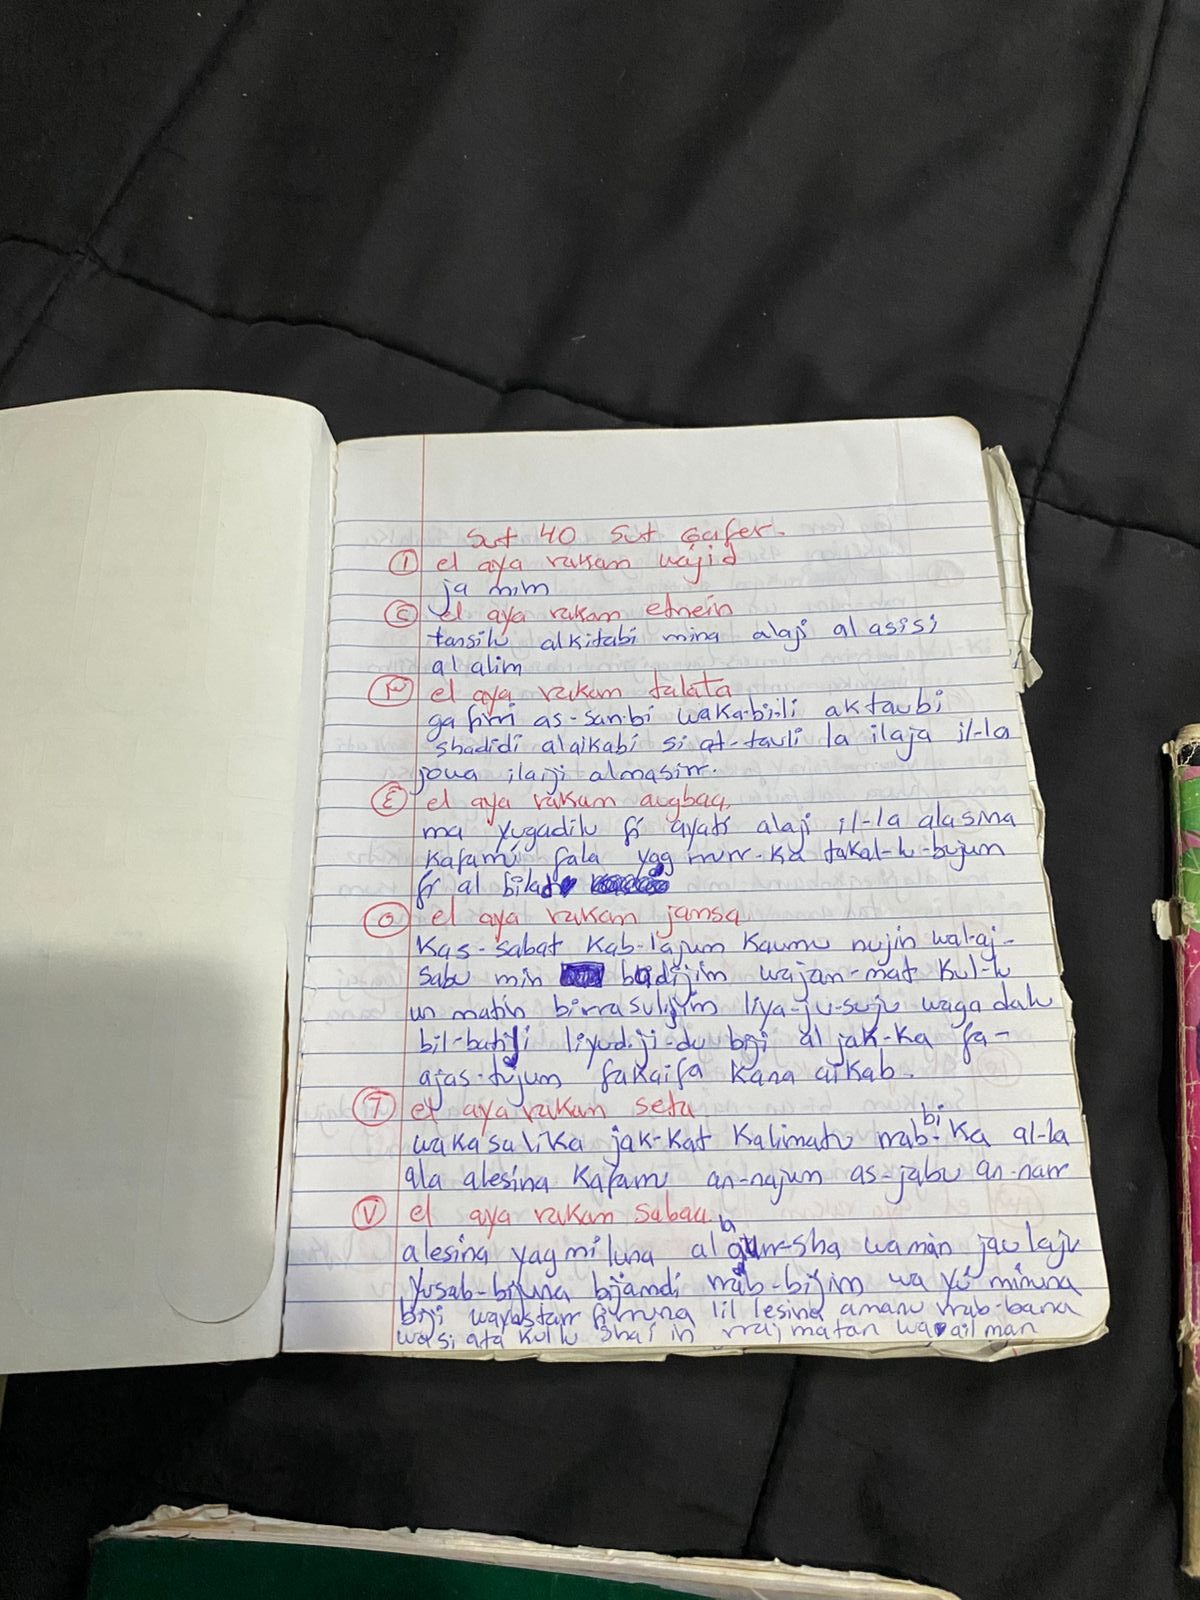 Sut 40 Sut Gafer.
① el aya rakam wajid
ja mim
② el aya rakam etnein
tansilu alkitabi mina alaji al asisi
al alim
③ el aya rakam talata
gafirri as-sanbi wakabi-li aktaubi
shadidi alaikabi si at-tauli la ilaja il-la
joua ilaiji almasirr.
٤ el aya rakam augbaa,
ma yugadilu fi ayati alaji il-la alasina
kafami fala yag rrurr-ka takal-lu-bujum
fi al bilad
٥ el aya rakam jamsa
Kas-sabat Kab-lajum Kaumu nujin wal-aj-
sabu min badijim wajam-mat Kul-lu
un matin birrasulijim liya-ju-suju wagadalu
bil-batili liyud-ji-du biji al jak-ka fa-
ajas-tujum fakaifa kana aikab.
٦ el aya rakam seta
wakasalika jak-kat Kalimatu rrab-bi-ka al-la
ala alesina Kafaru an-najum as-jabu an-narr
٧ el aya rakam sabaa
alesina yagmiluna al garr-sha waman jaulaju
yusab-bijuna bijamdi rrab-bijim wa yu minuna
biji wayastarr firruna lil lesina amanu rrab-bana
wasi ata kullu shai in rraj matan wa ailman